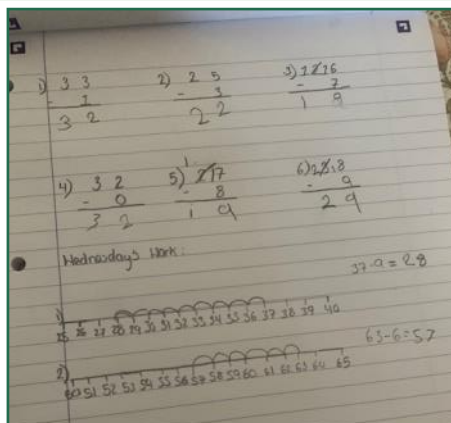 1) 3 3 2) 2 5 3) 1 2 16
- 1 - 3 - 7
3 2 2 2 1 9
1
4) 3 2 5) 2 17 6) 2 3 18
- 0 - 8 - 9
3 2 1 9 2 9
Wednesday's Work:
37-9=28
1)
25 26 27 28 29 30 31 32 33 34 35 36 37 38 39 40
63-6=57
2)
50 51 52 53 54 55 56 57 58 59 60 61 62 63 64 65